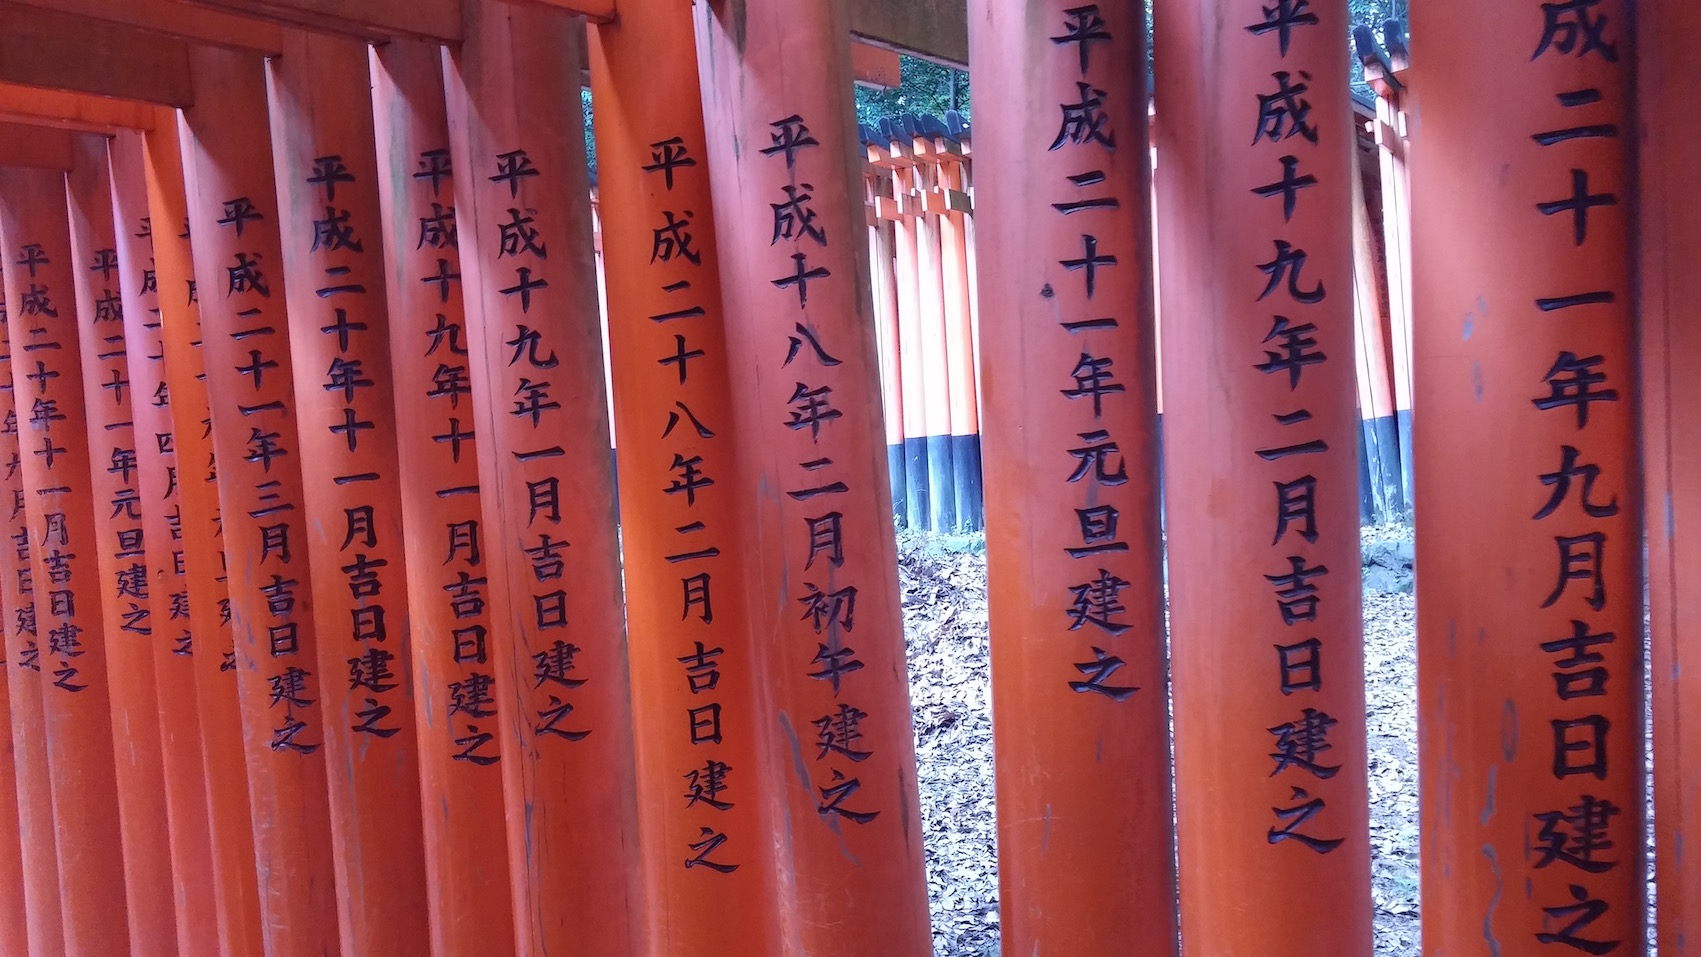 成二十一年九月吉日建之
平成十九年二月吉日建之
平成二十一年元旦建之
平成十八年二月初午建之
平成二十八年二月吉日建之
平成十九年一月吉日建之
平成十九年十一月吉日建之
平成二十年十一月吉日建之
平成二十一年三月吉日建之
平成二十年四月吉日建之
平成二十一年元旦建之
平成二十年十一月吉日建之
年九月吉日建之